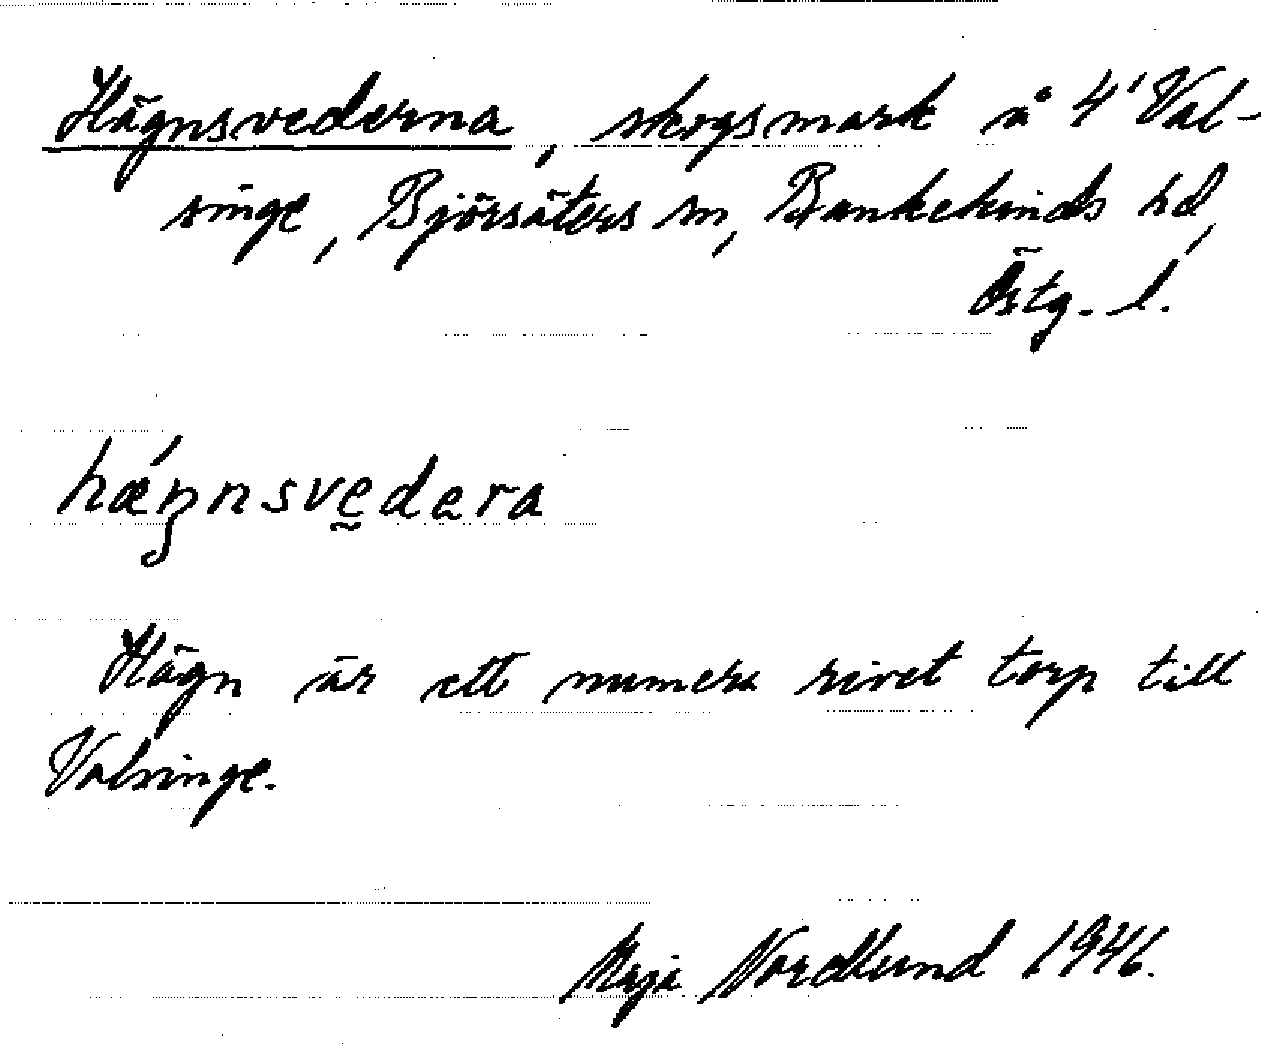 Hägnsvederna, skogsmark å 4' Val-
singe, Björsäters sn, Bankekinds hd,
Östg. l.
hǽŋnsvedera
Hägn är ett numera rivet torp till
Valsinge.
Maja Nordlund 1946.